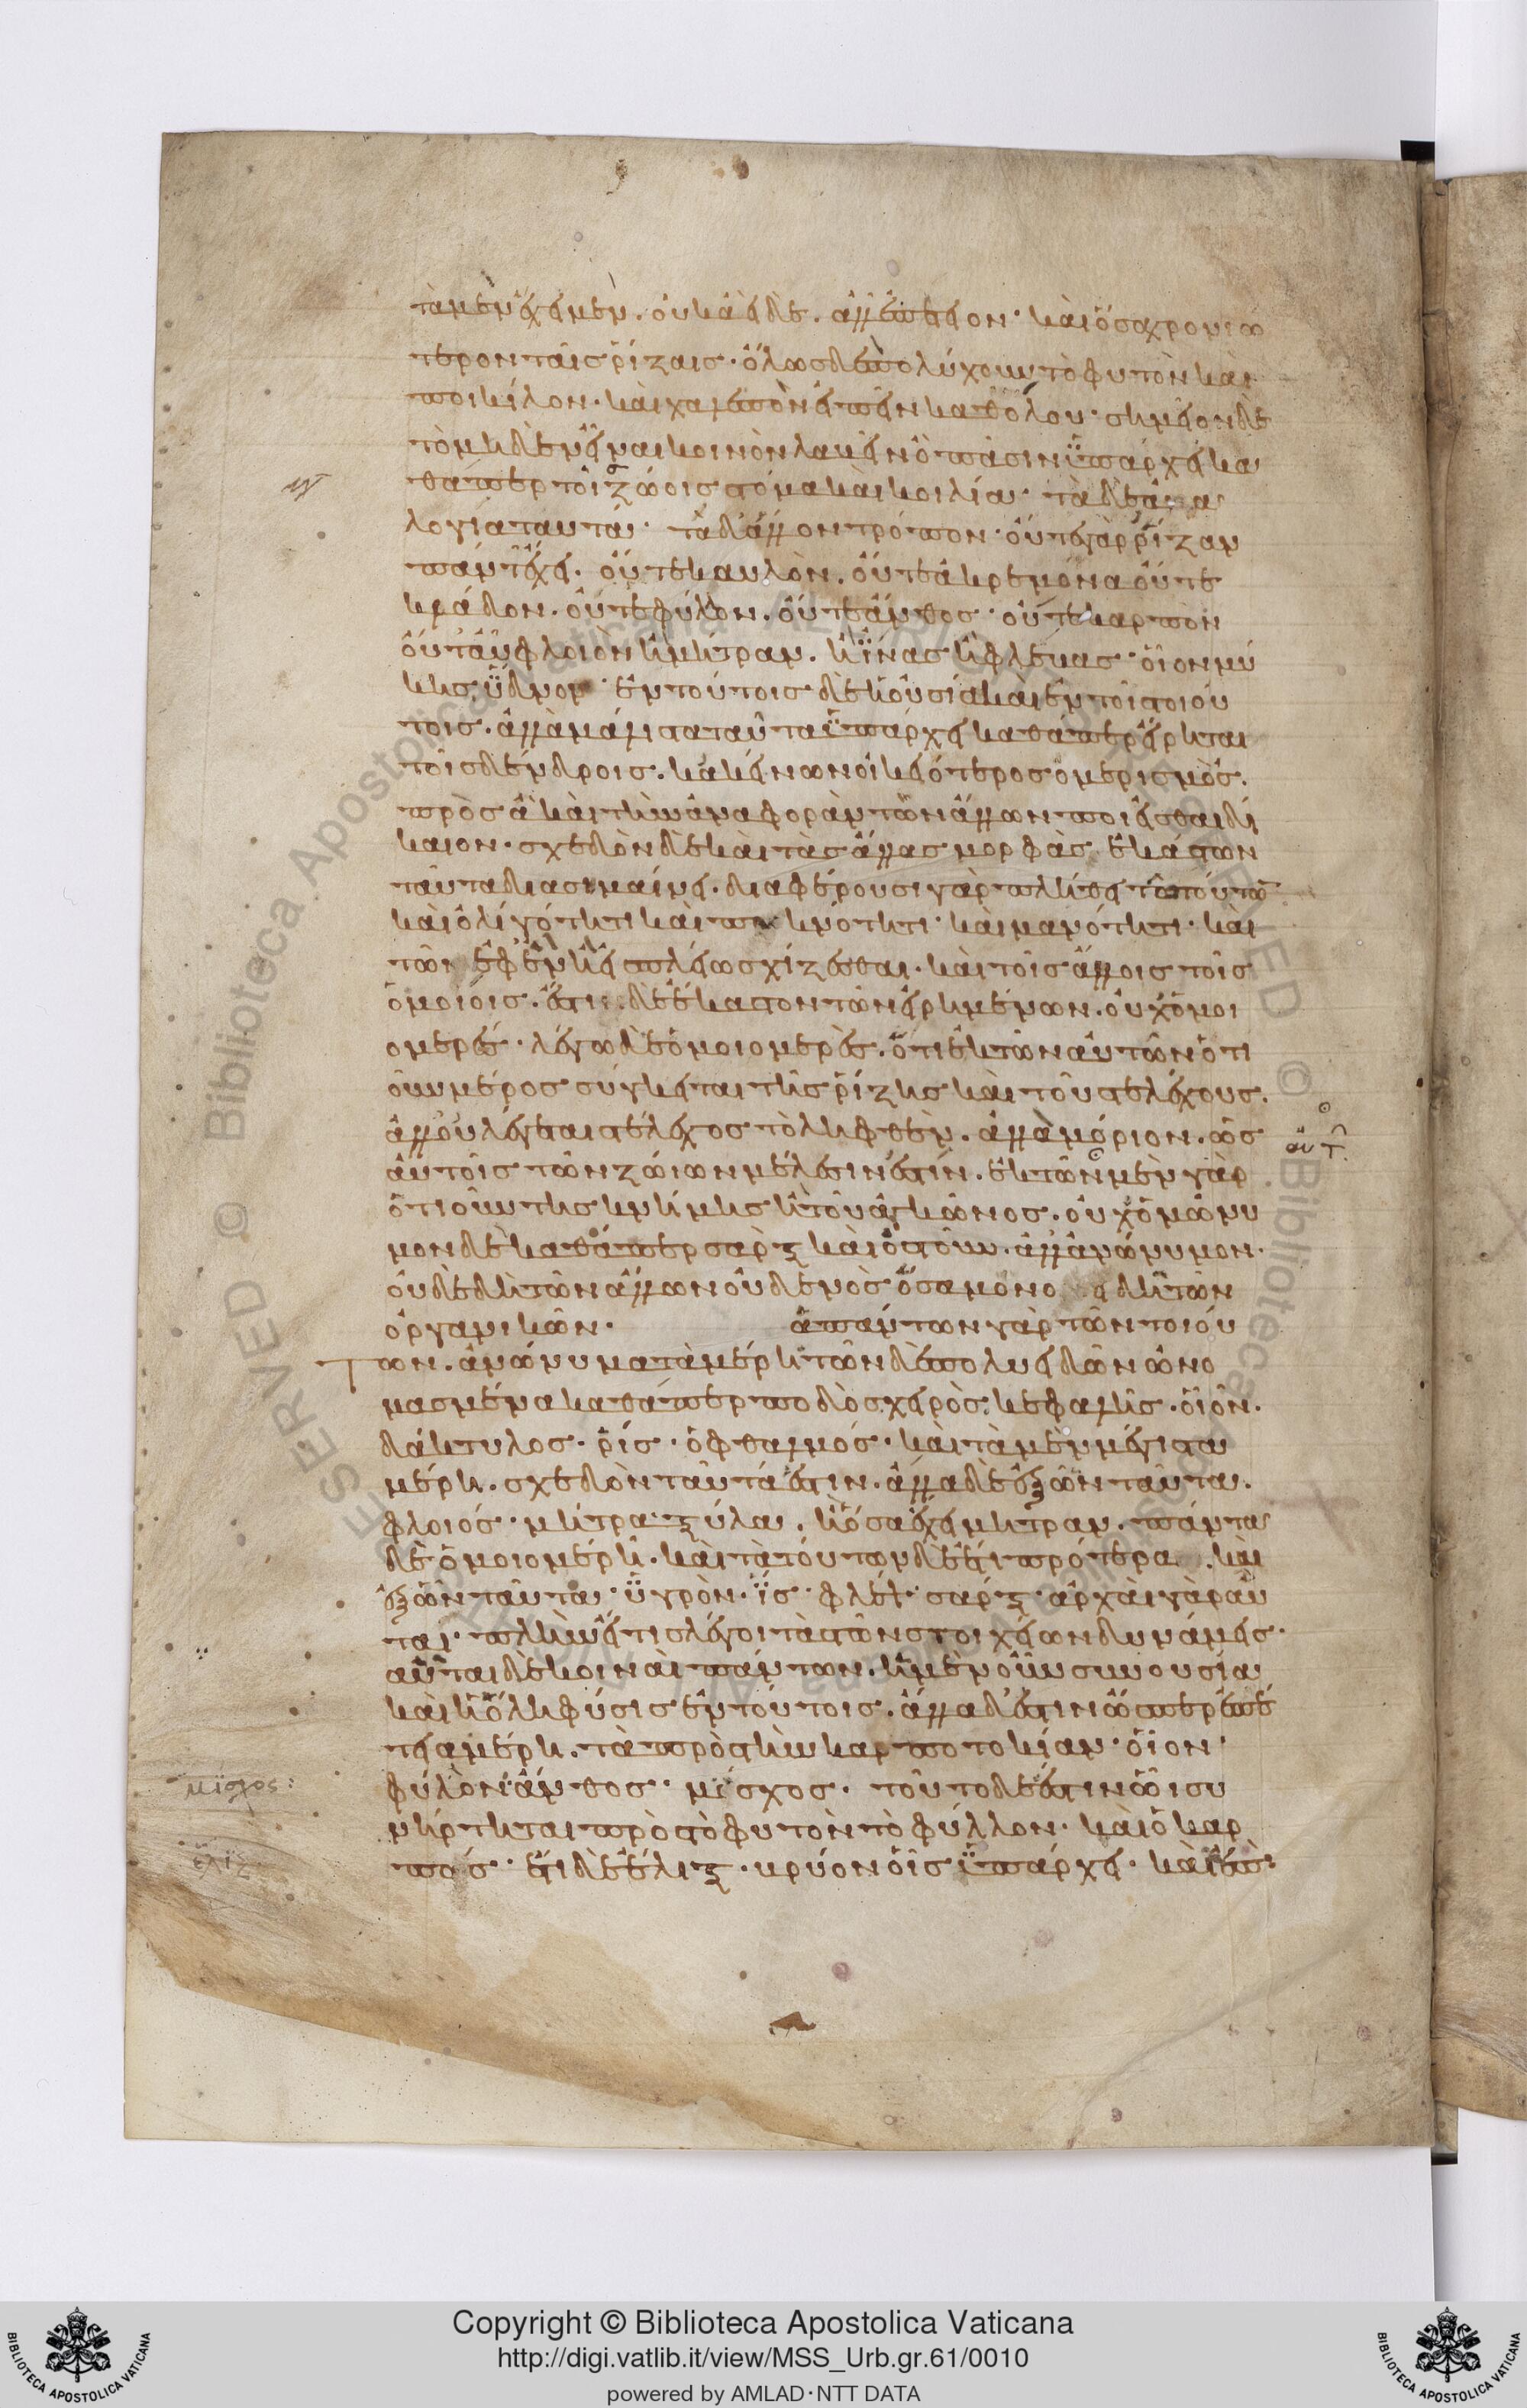 τὰ μὲν ἔχει μὲν. οὐκ ἀεὶ δέ. ἀλλ' ἐπέτειον· καὶ ὅσα χρονιώ
τερον ταῖς ῥίζαις· ὅλως δὲ πολύχουν τὸ φυτὸν καὶ
ποικίλον· καὶ χαλεπὸν εἰπεῖν καθόλου· σημεῖον δὲ
τὸ μηδὲν εἶναι κοινὸν λαβεῖν ὃ πᾶσιν ὑπάρχει κα
θάπερ τοῖς ζώοις στόμα καὶ κοιλία· τὰ δὲ ἀνα
λογία ταυτά· τὰ δ' ἄλλον τρόπον· οὔτε γὰρ ῥίζαν
πάντ' ἔχει. οὔτε καυλὸν. οὔτε ἀκρεμόνα οὔτε
κλάδον. οὔτε φύλλον. οὔτε ἄνθος· οὔτε καρπὸν
οὔτ' αὖ φλοιὸν ἢ μήτραν. ἢ ἶνας ἢ φλέβας· οἷον μύ
κης ὕδνον· ἐν τούτοις δὲ ἡ οὐσία καὶ ἐν τοῖς τοιού
τοις. ἀλλὰ μάλιστα ταῦτα ὑπάρχει καθάπερ εἴρηται
τοῖς δένδροις. κἀκείνων οἰκειότερος ὁ μερισμός.
πρὸς ἃ καὶ τὴν ἀναφορὰν τῶν ἄλλων ποιεῖσθαι δί
καιον· σχεδὸν δὲ καὶ τὰς ἄλλας μορφὰς ἑκάστων
ταῦτα διασημαίνει. διαφέρουσι γὰρ πλήθει τῶ τούτων
καὶ ὀλιγότητι καὶ πυκνότητι· καὶ μανότητι· καὶ
τῶ ἐφ' ἓν ἢ εἰς πλείω σχίζεσθαι· καὶ τοῖς ἄλλοις τοῖς
ὁμοίοις. ἔστι δὲ ἕκαστον τῶν εἰρημένων. οὐχ ὁμοι
ομερές· λέγω δὲ ὁμοιομερές. ὅτι ἐκ τῶν αὐτῶν ὁτι
οῦν μέρος σύγκειται τῆς ῥίζης καὶ τοῦ στελέχους.
ἀλλ' οὐ λέγεται στέλεχος τὸ ληφθὲν. ἀλλὰ μόριον. ὡς
αὐτοῖς τῶν ζώιων μέλεσίν ἐστίν. ἐκ τῶν μὲν γὰρ
ὁτιοῦν τῆς κνήμης ἢ τοῦ ἀγκῶνος. οὐχ ὁμώνυ
μον δὲ καθάπερ σὰρξ καὶ ὀστοῦν. ἀλλ' ἀνώνυμον·
οὐδὲ δὴ τῶν ἄλλων οὐδενὸς ὅσα μονο δὴ τῶν
ὀργανικῶν· ἁπάντων γὰρ τῶν τοιού
Των. ἀνώνυμα τὰ μέρη τῶν δὲ πολυειδῶν ὠνο
μασμένα καθάπερ ποδὸς χειρὸς κεφαλῆς. οἷον.
δάκτυλος· ῥίς· ὀφθαλμός· καὶ τὰ μὲν μέγιστα
μέρη. σχεδὸν ταῦτά ἐστιν. ἄλλα δὲ ἐξ ὧν ταῦτα.
φλοιός· μήτρα· ξύλα. ἢ ὅσα ἔχει μήτραν. πάντα
δὲ ὁμοιομερῆ. καὶ τὰ τούτων δὲ ἔτι πρότερα καὶ
ἐξ ὧν ταῦτα· ὑγρὸν· ἲς· φλέψ· σάρξ· ἀρχαὶ γὰρ αὗ
ται· πλὴν εἴ τις λέγοι τὰς τῶν στοιχείων δυνάμεις·
αὗται δὲ κοιναὶ πάντων. ἡ μὲν οὖν συνουσία
καὶ ἡ ὅλη φύσις ἐν τούτοις. ἄλλα δ' ἐστὶν ὥσπερ ἐπέ
τεια μέρη. τὰ πρὸς τὴν καρποτοκίαν· οἷον·
φύλλον· ἄνθος· μίσχος· τοῦτο δὲ ἐστιν ὧι συ
νήρτηται πρὸς τὸ φυτὸν τὸ φύλλον· καὶ ὁ καρ
πός· ἔτι δὲ ἕλιξ· βρύον οἷς ὑπάρχει· καὶ ἐπὶ
μίσχος:
ἕλιξ